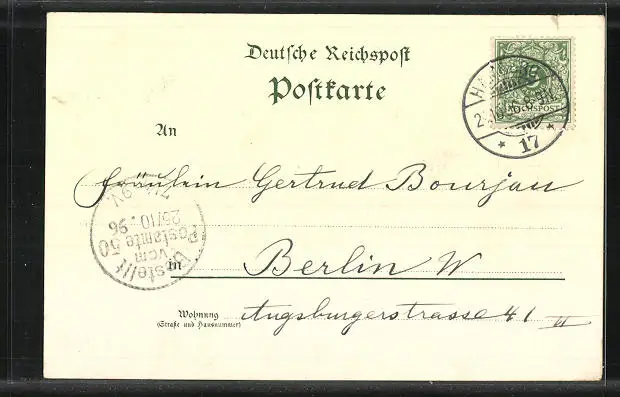 Deutsche Reichspost
Postkarte
REICHSPOST
17
An
Fräulein Gertrud Bourjau
Bestellt
vom
Postamte 50
25/10. 96
in Berlin W
Wohnung
(Straße und Hausnummer)
Augsburgerstrasse 41 II